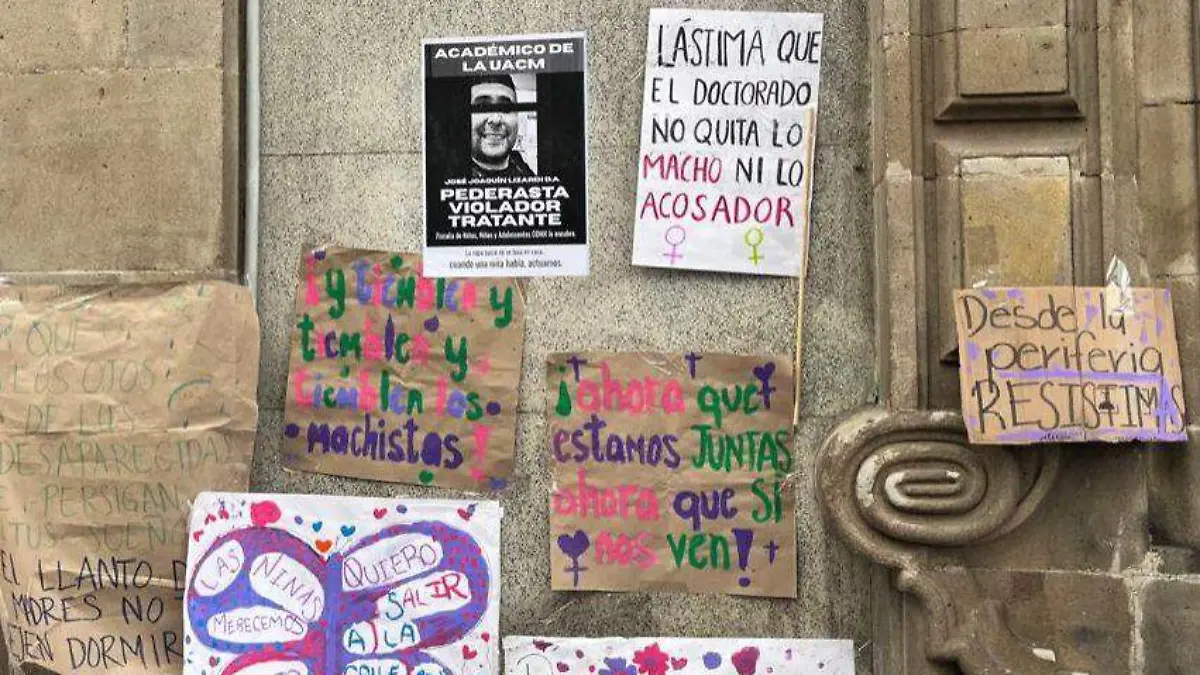 ACADÉMICO DE
LA UACM
JOSÉ JOAQUÍN LIZARDI D.A
PEDERASTA
VIOLADOR
TRATANTE
Fiscalía de Niños, Niñas y Adolescentes CDMX lo encubre.
La ropa sucia no se lava en casa.
cuando una niña habla, actuamos.
LÁSTIMA QUE
EL DOCTORADO
NO QUITA LO
MACHO NI LO
ACOSADOR
¡y tiemblen y
tiemblen y
tiemblen los
machistas!
¡ahora que
estamos JUNTAS
ahora que SÍ
nos ven!
Desde la
periferia
RESISTIMXS
QUE
LOS OJOS
DE LOS
DESAPARECIDAS
PERSIGAN
TUS SUEÑOS
EL LLANTO D
MADRES NO
DEJEN DORMIR
LAS NIÑAS
MERECEMOS
QUIERO
SALIR
A LA
CALLE